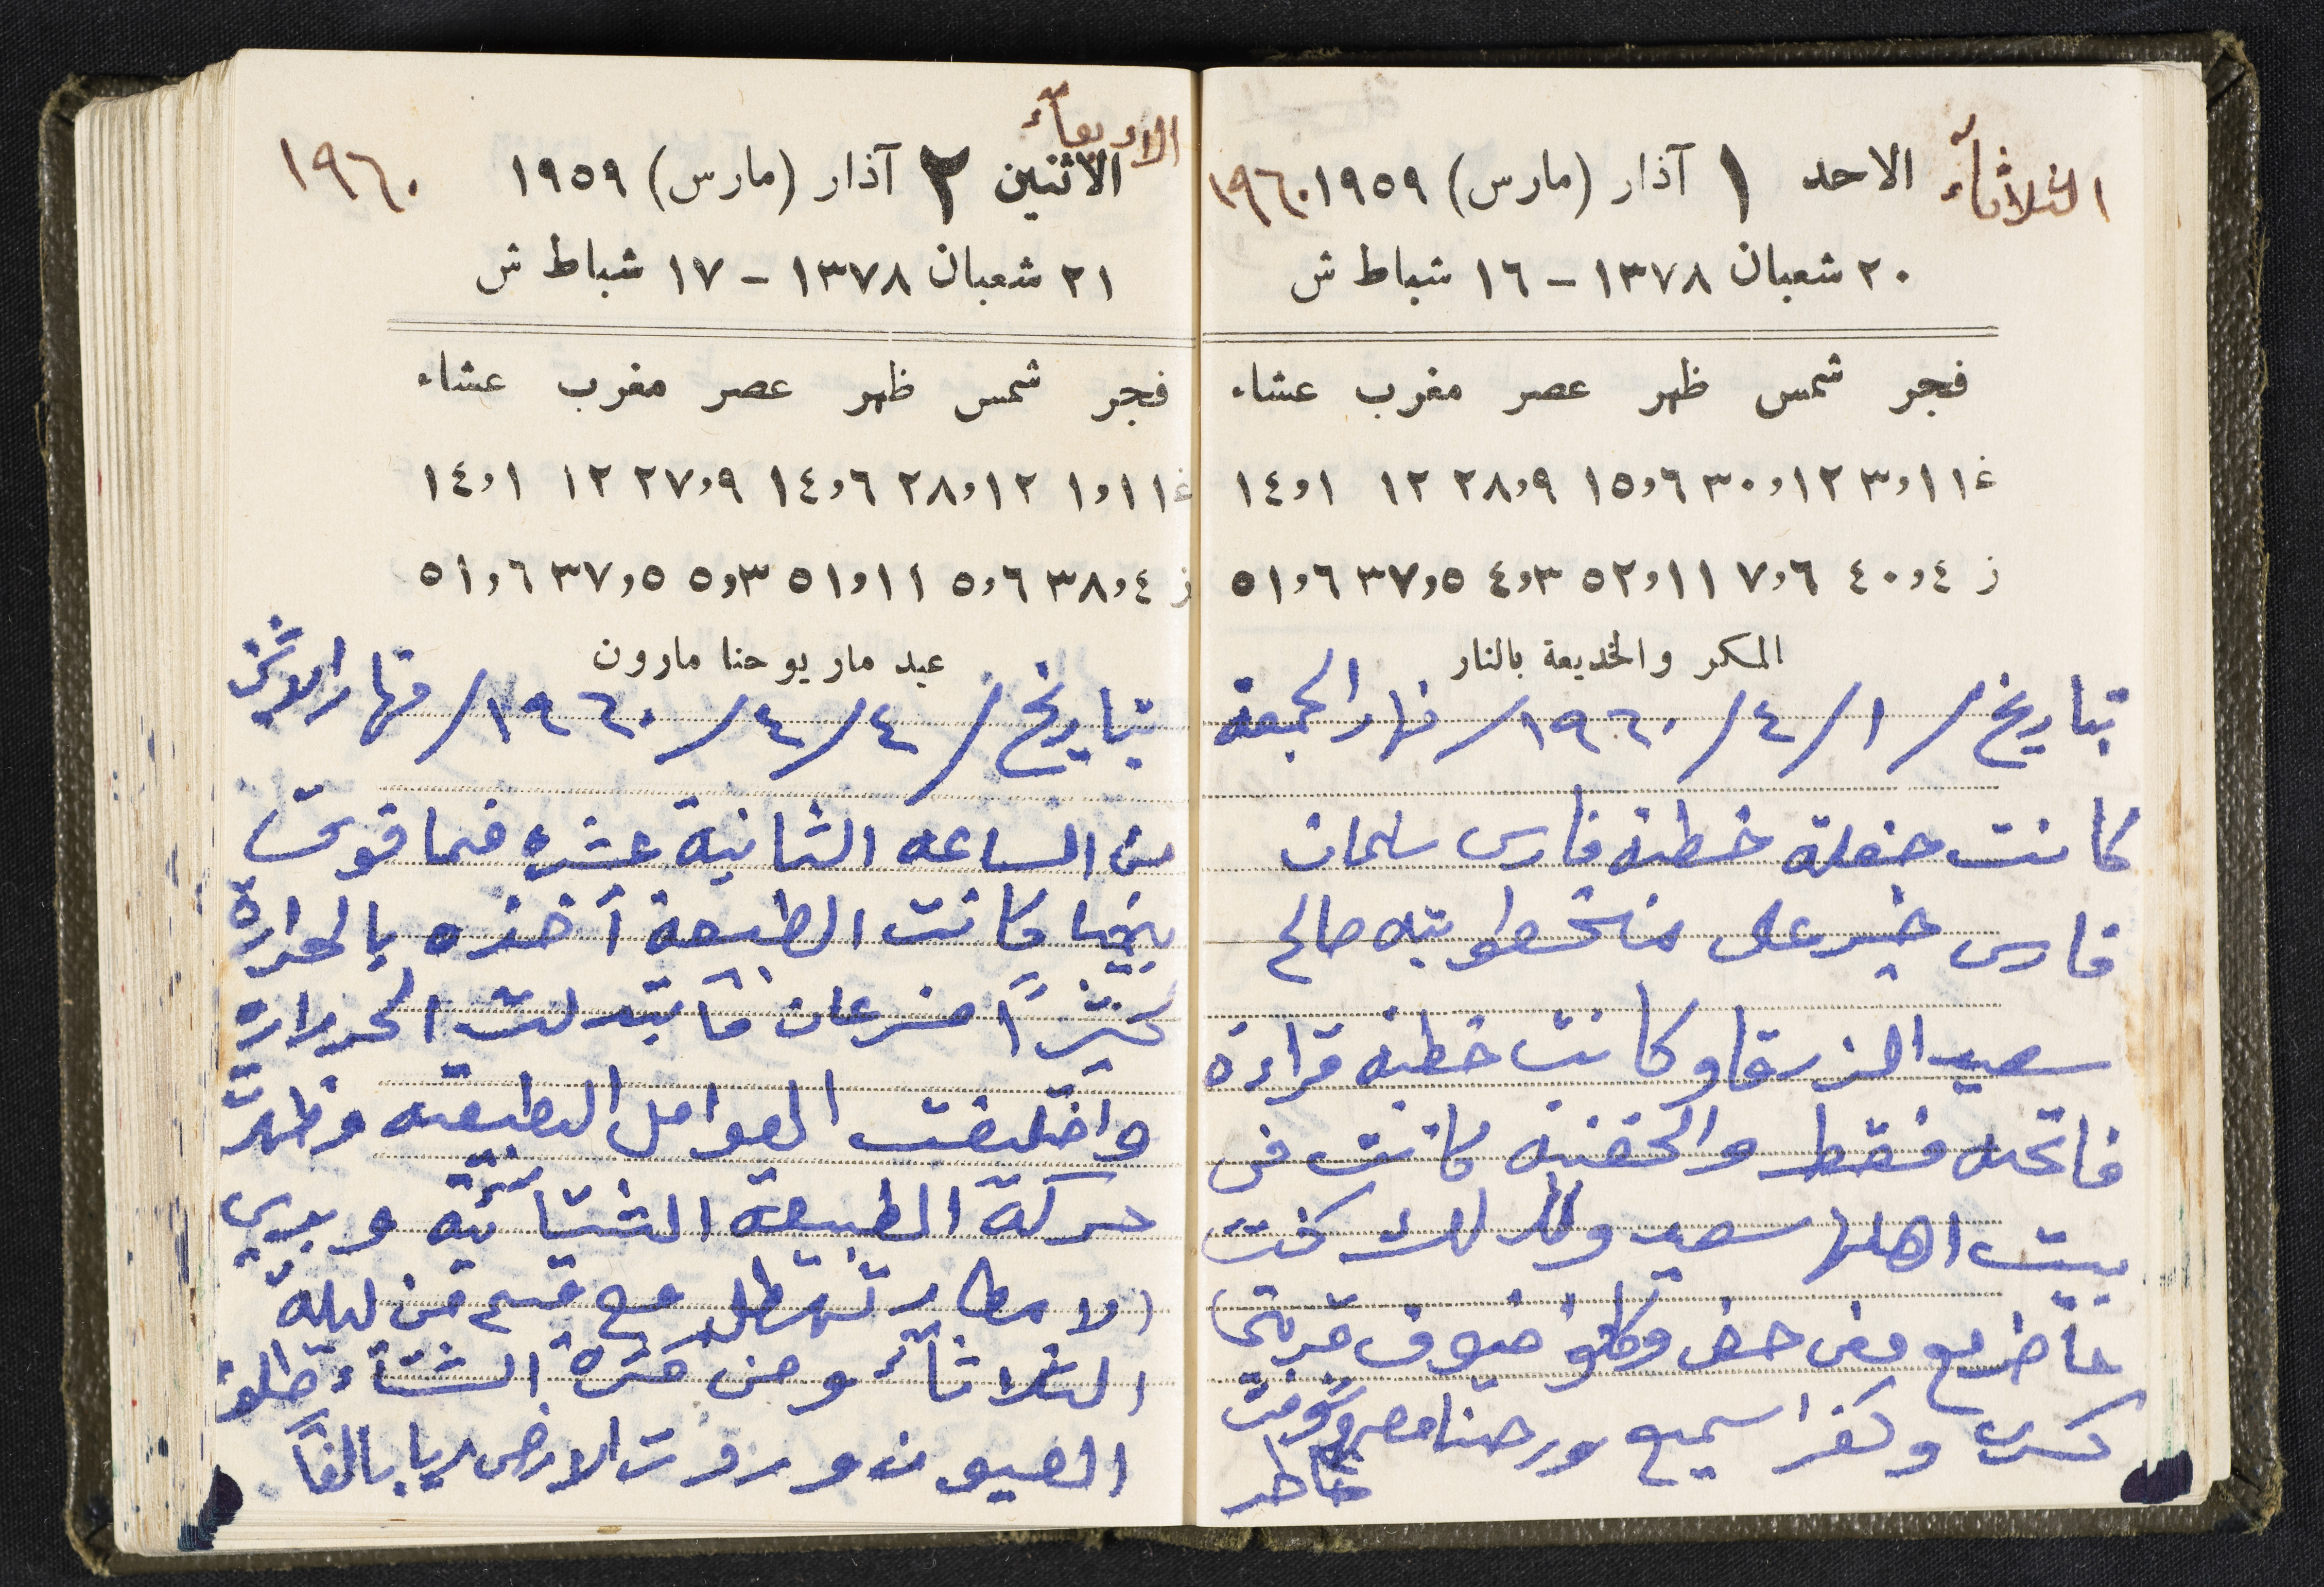 الثلاثآء الاحد ١ آذار (مارس) ١٩٥٩ ١٩٦٠
٢٠ شعبان ١٣٧٨ - ١٦ شباط ش
فجر شمس ظهر عصر مغرب عشاء
غ ١١،٣ ١٢،٣٠ ٦،١٥ ٩،٢٨ ١٢ ١،١٤
ز ٤،٤٠ ٦،٧ ١١،٥٢ ٣،٤ ٥،٣٧ ٦،٥١
المكر والخديعة بالنار
بتاريخ / ١ / ٤ / ١٩٦٠ / نهار الجمعة
كانت حفلة خطبة فارس سلمان
فارس خير على مخطوبته صالح
سعيد الزرقا وكانت خطبة قراءة
فاتحه فقط والحفله كانت في
بيت اهلها سعيد ولذلك كنت
حاضر مع من حضر وكانو ضيوف قريتي
كسرى وكفر اسميع ورحنا
خاطر
الاربعآء
الاثنين ٢ آذار (مارس) ١٩٥٩ ١٩٦٠
٢١ شعبان ١٣٧٨ - ١٧ شباط ش
فجر شمس ظهر عصر مغرب عشاء
غ ١١،١ ١٢،٢٨ ٦،١٤ ٩،٢٧ ١٢ ١،١٤
ز ٤،٣٨ ٦،٥ ١١،٥١ ٣،٥ ٥،٣٧ ٦،٥١
عيد مار يوحنا مارون
بتاريخ / ٤ / ٤ / ١٩٦٠ / نهار الاثنين
من الساعه الثانية عشره فما فوق
بينما كانت الطبيعة أخذه بالحرارة
كثيراً فسرعان ما تبدلت الحراره
واختلفت العوامل الطبيعيه وظهرت
حركة الطبيعة الشتائية و
الامطار تهطل مع قسم من ليلة
الثلاثآء ومن كثرة الشتآء طلعو
العيون وروت الارض ريا بالغاً